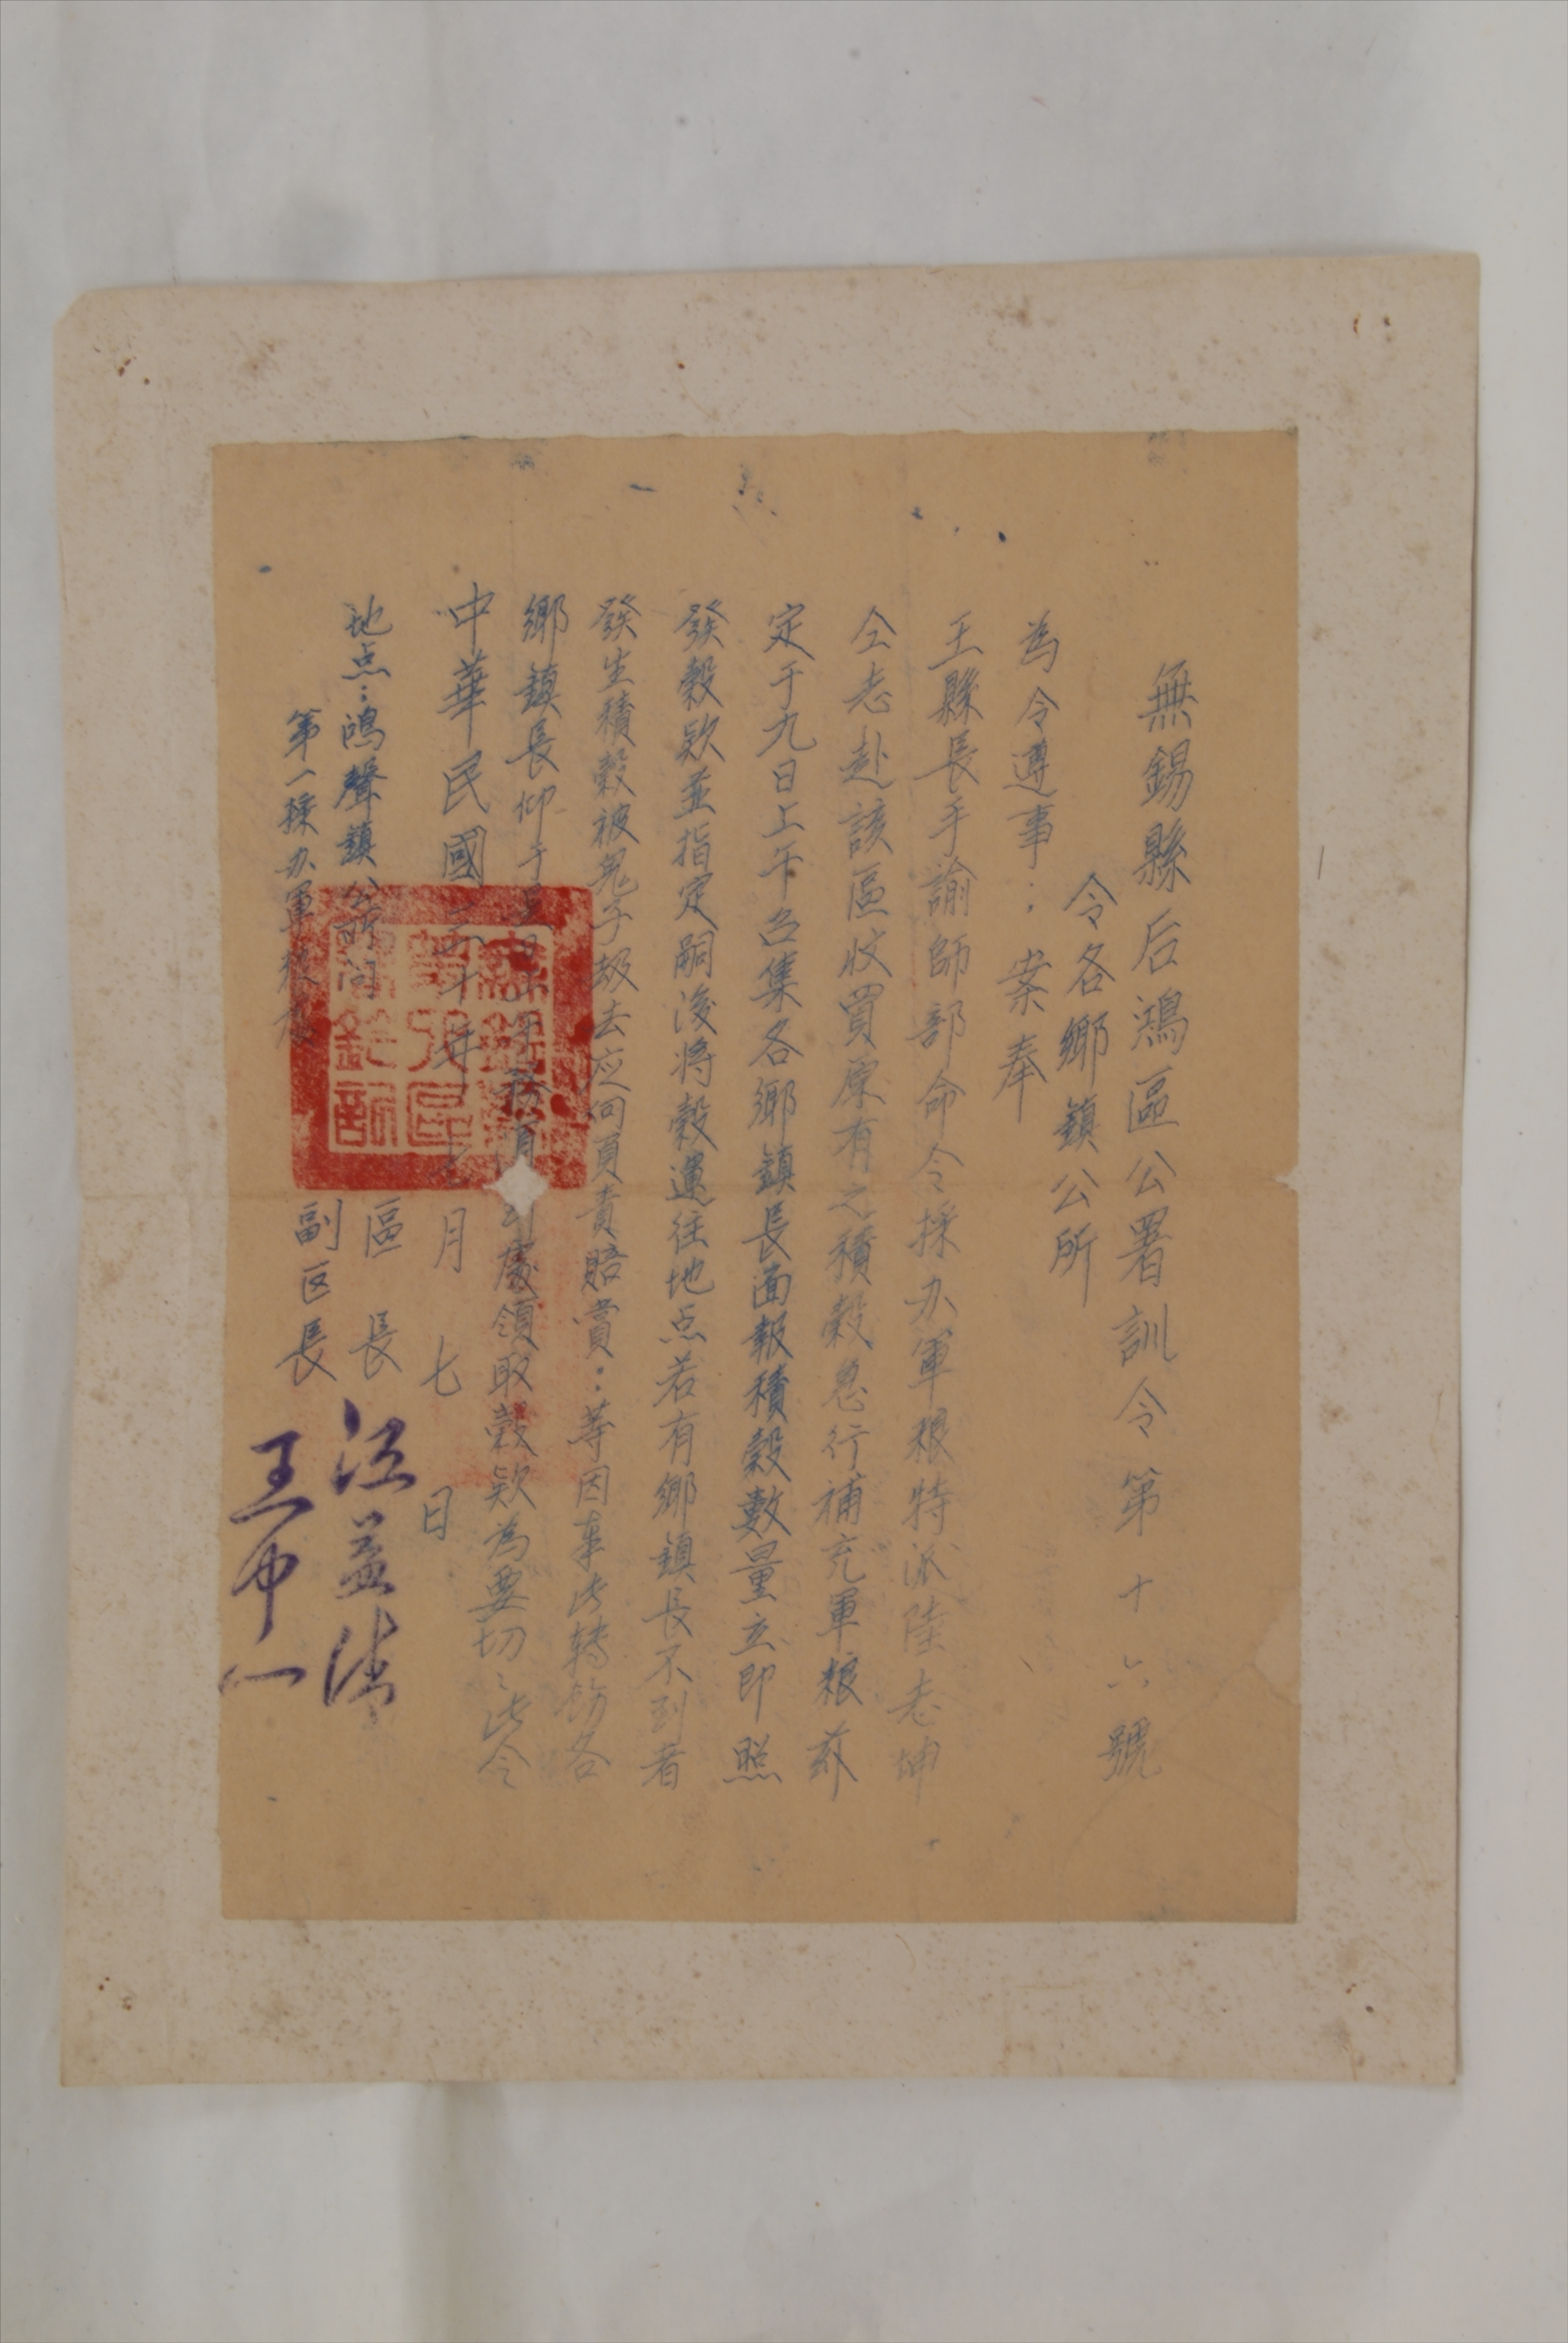 無錫縣后鴻區公署訓令第十六號
令各鄉鎮公所
為令遵事：案奉
王縣長手諭師部命令採办軍粮特派陸志坤
仝志赴該區收買原有之積穀急行補充軍粮茲
定于九日上午召集各鄉鎮長面報積穀數量立即照
發穀款並指定嗣後將穀運往地点若有鄉鎮長不到者
發生積穀被鬼子刼去应何負責賠賞：等因奉此轉飭各
鄉鎮長仰于是日上午務須到處領取穀款為要切〻此令
中華民國三十年七月七日
地点：鴻聲鎮公所内
第一採办軍粮處
區長
副区長 王中一